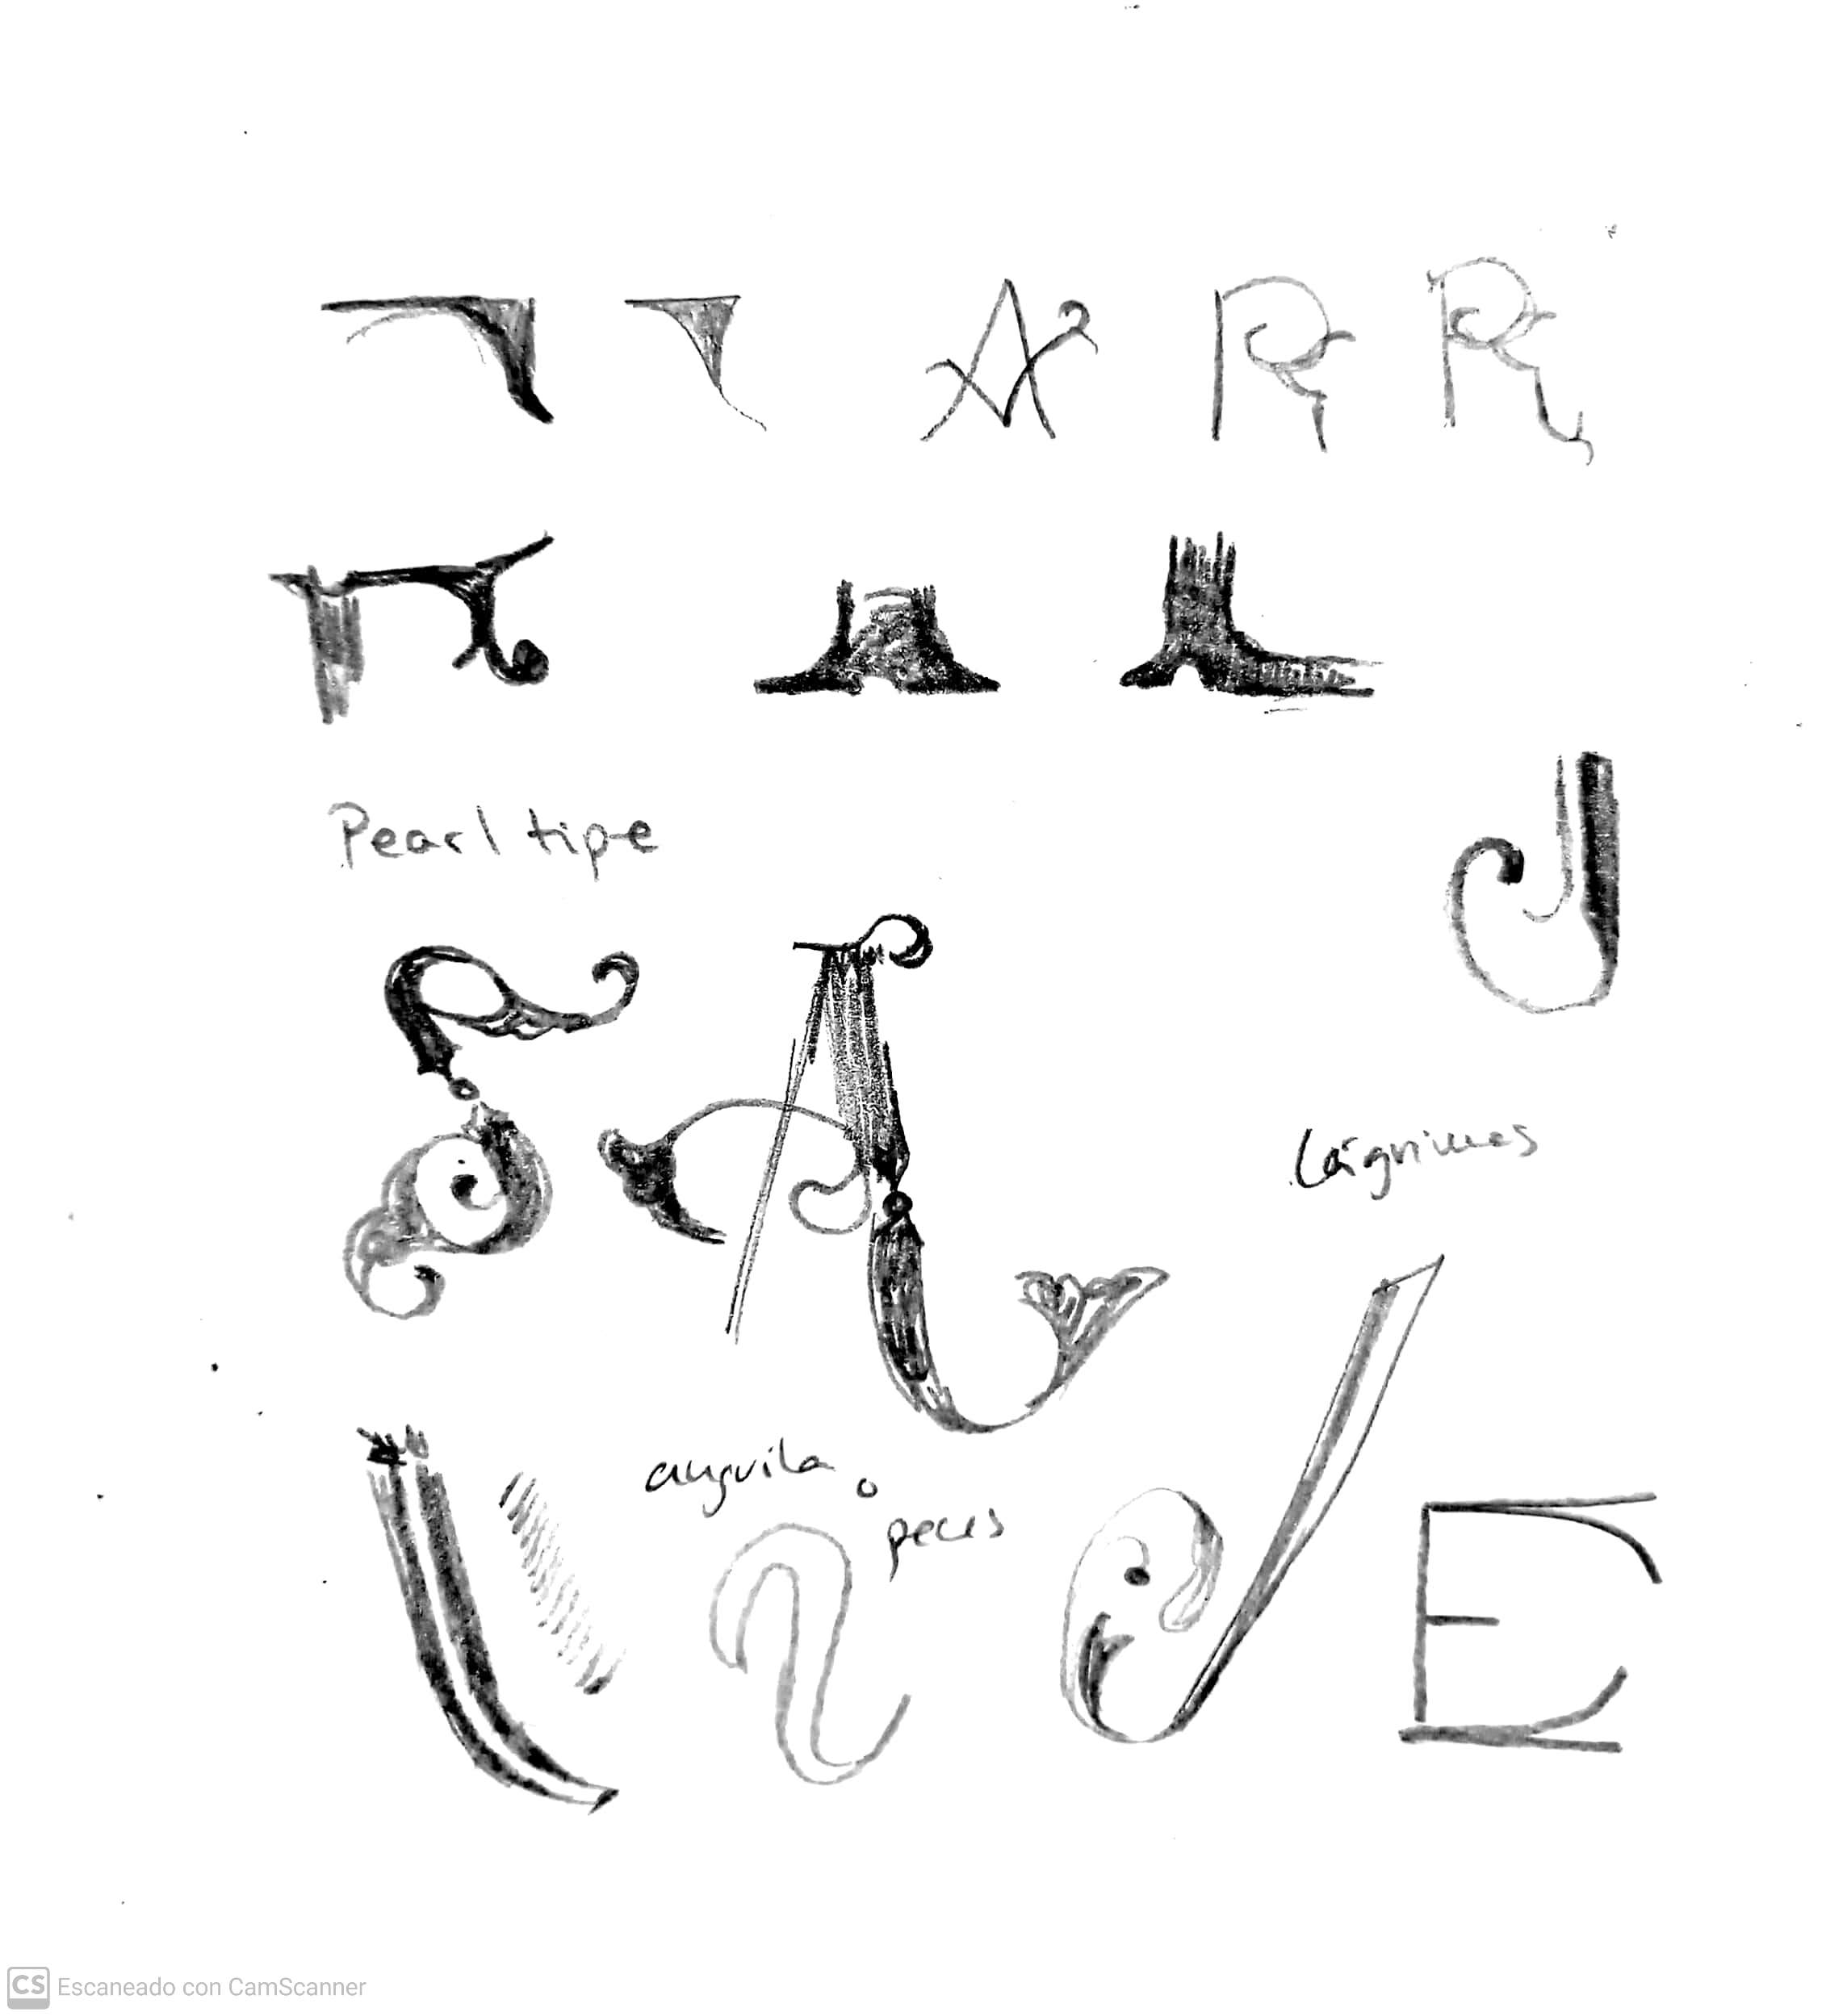 A R R
Pearl tipe
J
A
Lágrimas
anguila o
peces
E
CS Escaneado con CamScanner